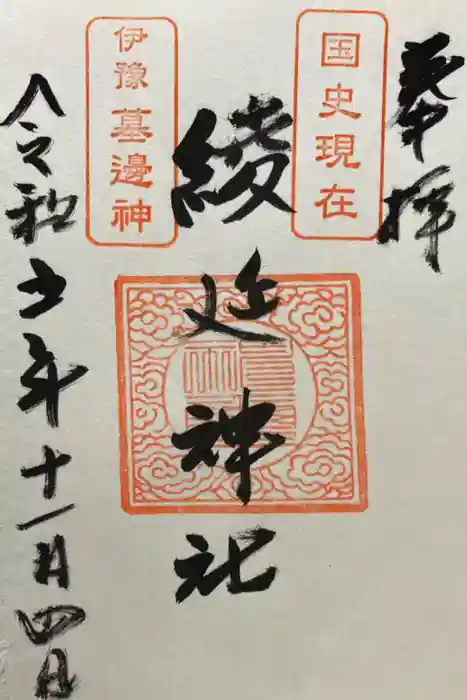 奉拝
国史現在
綾延神社
伊豫墓邊神
令和五年十一月四日